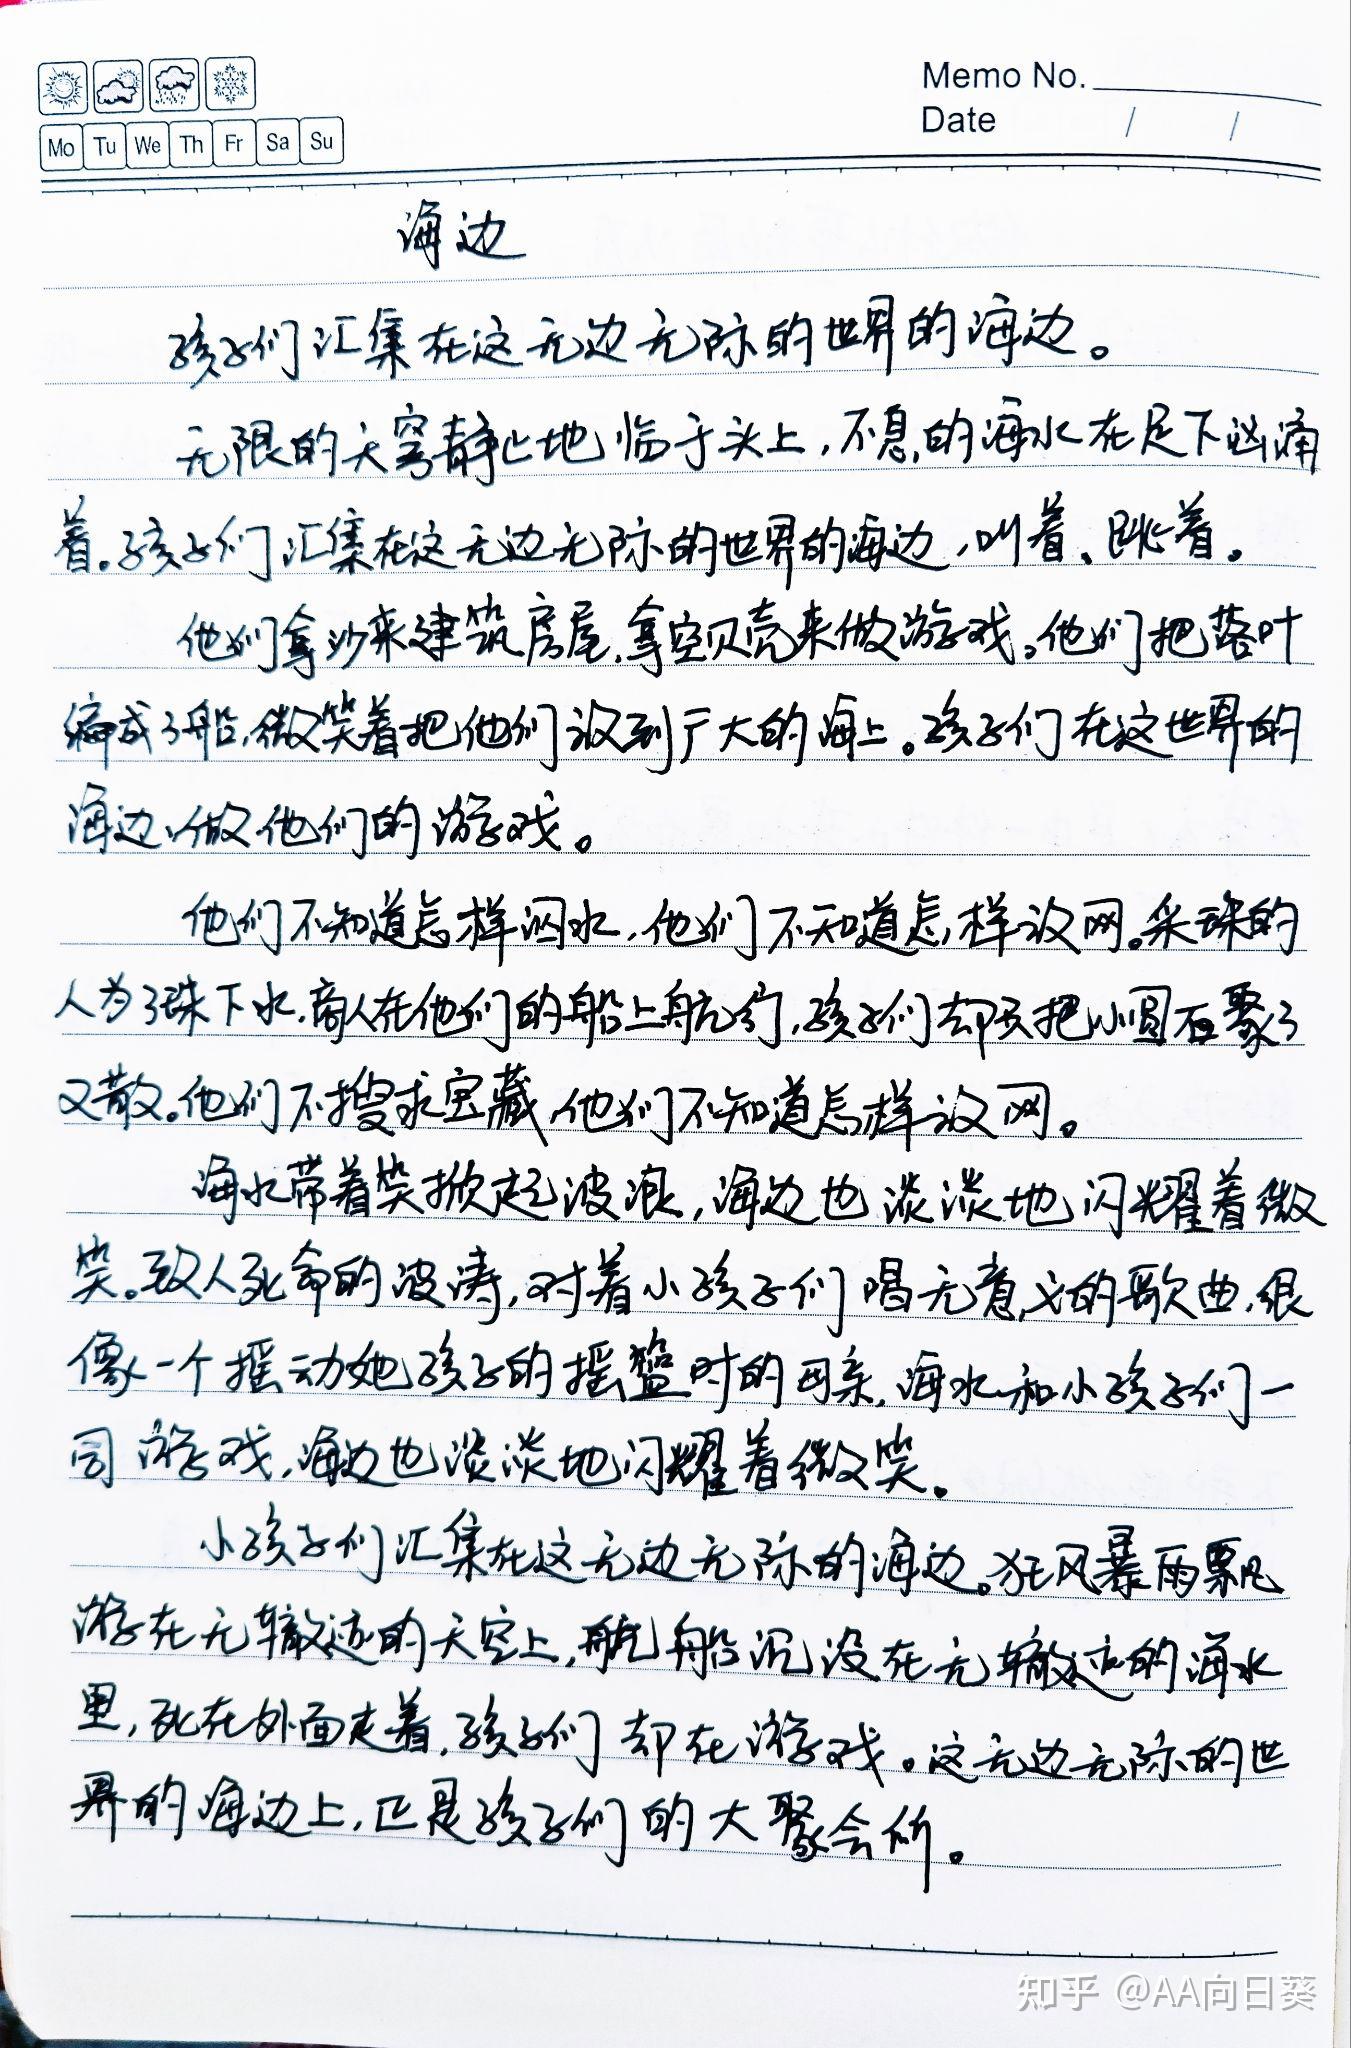 Memo No.
Date / /
Mo Tu We Th Fr Sa Su
海边
孩子们汇集在这无边无际的世界的海边。
无限的天穹静止地临于头上,不息的海水在足下汹涌
着。孩子们汇集在这无边无际的世界的海边,叫着、跳着。
他们拿沙来建筑房屋,拿空贝壳来做游戏。他们把落叶
编成了船,微笑着把他们放到广大的海上。孩子们在这世界的
海边,做他们的游戏。
他们不知道怎样泅水,他们不知道怎样放网。采珠的
人为了珠下水,商人在他们的船上航行,孩子们却只把小圆石聚了
又散。他们不搜求宝藏,他们不知道怎样放网。
海水带着笑掀起波浪,海边也淡淡地闪耀着微
笑。致人死命的波涛,对着小孩子们唱无意义的歌曲,很
像一个摇动她孩子的摇篮时的母亲,海水和小孩子们一
同游戏,海边也淡淡地闪耀着微笑。
小孩子们汇集在这无边无际的海边。狂风暴雨飘
游在无辙迹的天空上,航船沉没在无辙迹的海水
里,死在外面走着,孩子们却在游戏。这无边无际的世
界的海边上,正是孩子们的大聚会所。
知乎 @AA向日葵